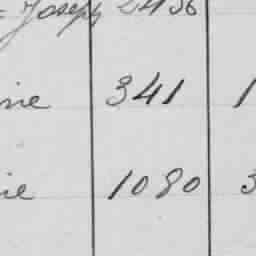 = Joseph 2436
ine 341 1
ie 1080 3